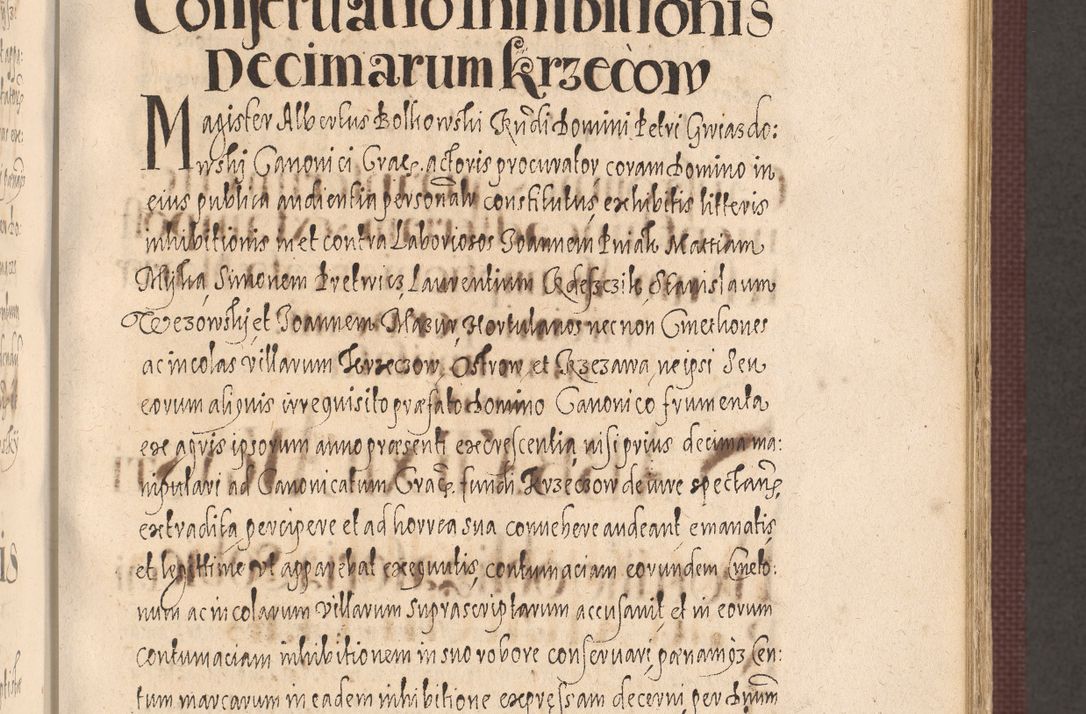 Conservatio Inhibitionis
Decimarum Krzecòw
Magister Albertus Bolkowski Rñdi Domini Petri Gwiasdo:
wskij Canonici Crac. actoris procurator coram Domino in
eius publica audientia personalr constitutus exhibitis litteris
inhibitionis in et contra Laboriosos Joannem Pniak Martiam
Simonem Pretwicz, Laurentium Stanislaum
et Joannem Mazur, Hortulanos nec non Cmethones
ac incolas villarum Krzeczow, Ostrow et Krzezawa, ne ipsi seu
eorum aliquis irrequisito præfato Domino Canonico frumenta
ex agris ipsorum anno præsenti excrescentia nisi prius decima ma:
nipulari ad Canonicatum Crac. fundi Krzeczow de iure spectans
extradita percipere et ad horrea sua convehere audeant, emanatis
et legittime vt apparebat exequutis, contumaciam eorundem Cmeto:
num ac incolarum villarum suprascriptarum accusavit et in eorum
contumaciam inhibitionem in suo robore conservari, pænamq3 Cen
tum marcarum in eadem inhibitione expressam decerni per Dnum